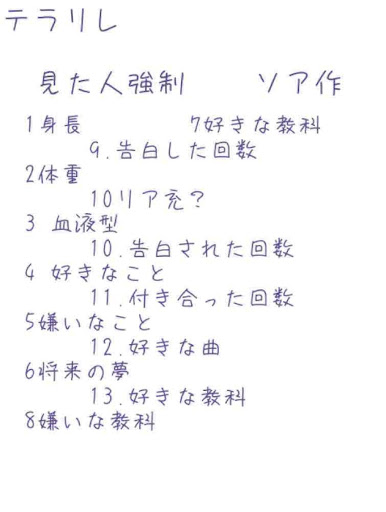 テラリレ
見た人強制 ソア作
1身長 7好きな教科
9.告白した回数
2体重
10リア充?
3 血液型
10.告白された回数
4 好きなこと
11.付き合った回数
5嫌いなこと
12.好きな曲
6将来の夢
13.好きな教科
8嫌いな教科